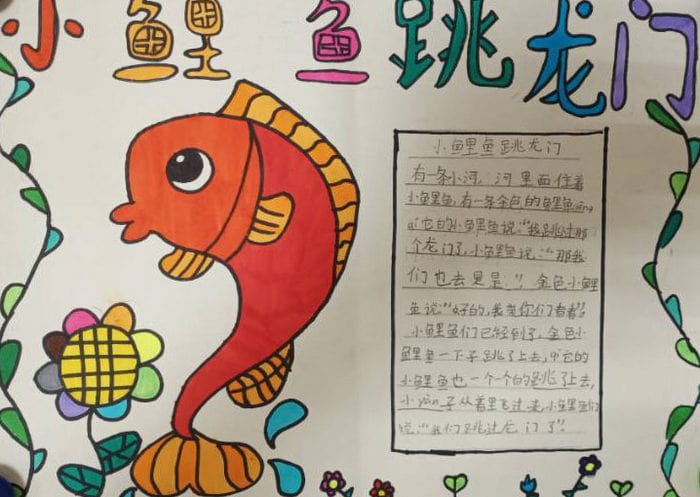 小鲤鱼跳龙门
小鲤鱼跳龙门
有一条小河，河里面住着
小鲤鱼，有一条金色的鲤鱼
它的小鲤鱼说：“我跳过那
个龙门了，小鲤鱼说：“那我
们也去是是：”，金色小鲤
鱼说：“好的，我带你们看看”。
小鲤鱼们已经到了，金色小
鲤鱼一下子跳了上去，它的
小鲤鱼也一个个的跳了上去，
小yàn子从着里飞过来，小鲤鱼们
说：“我们跳过龙门了”。